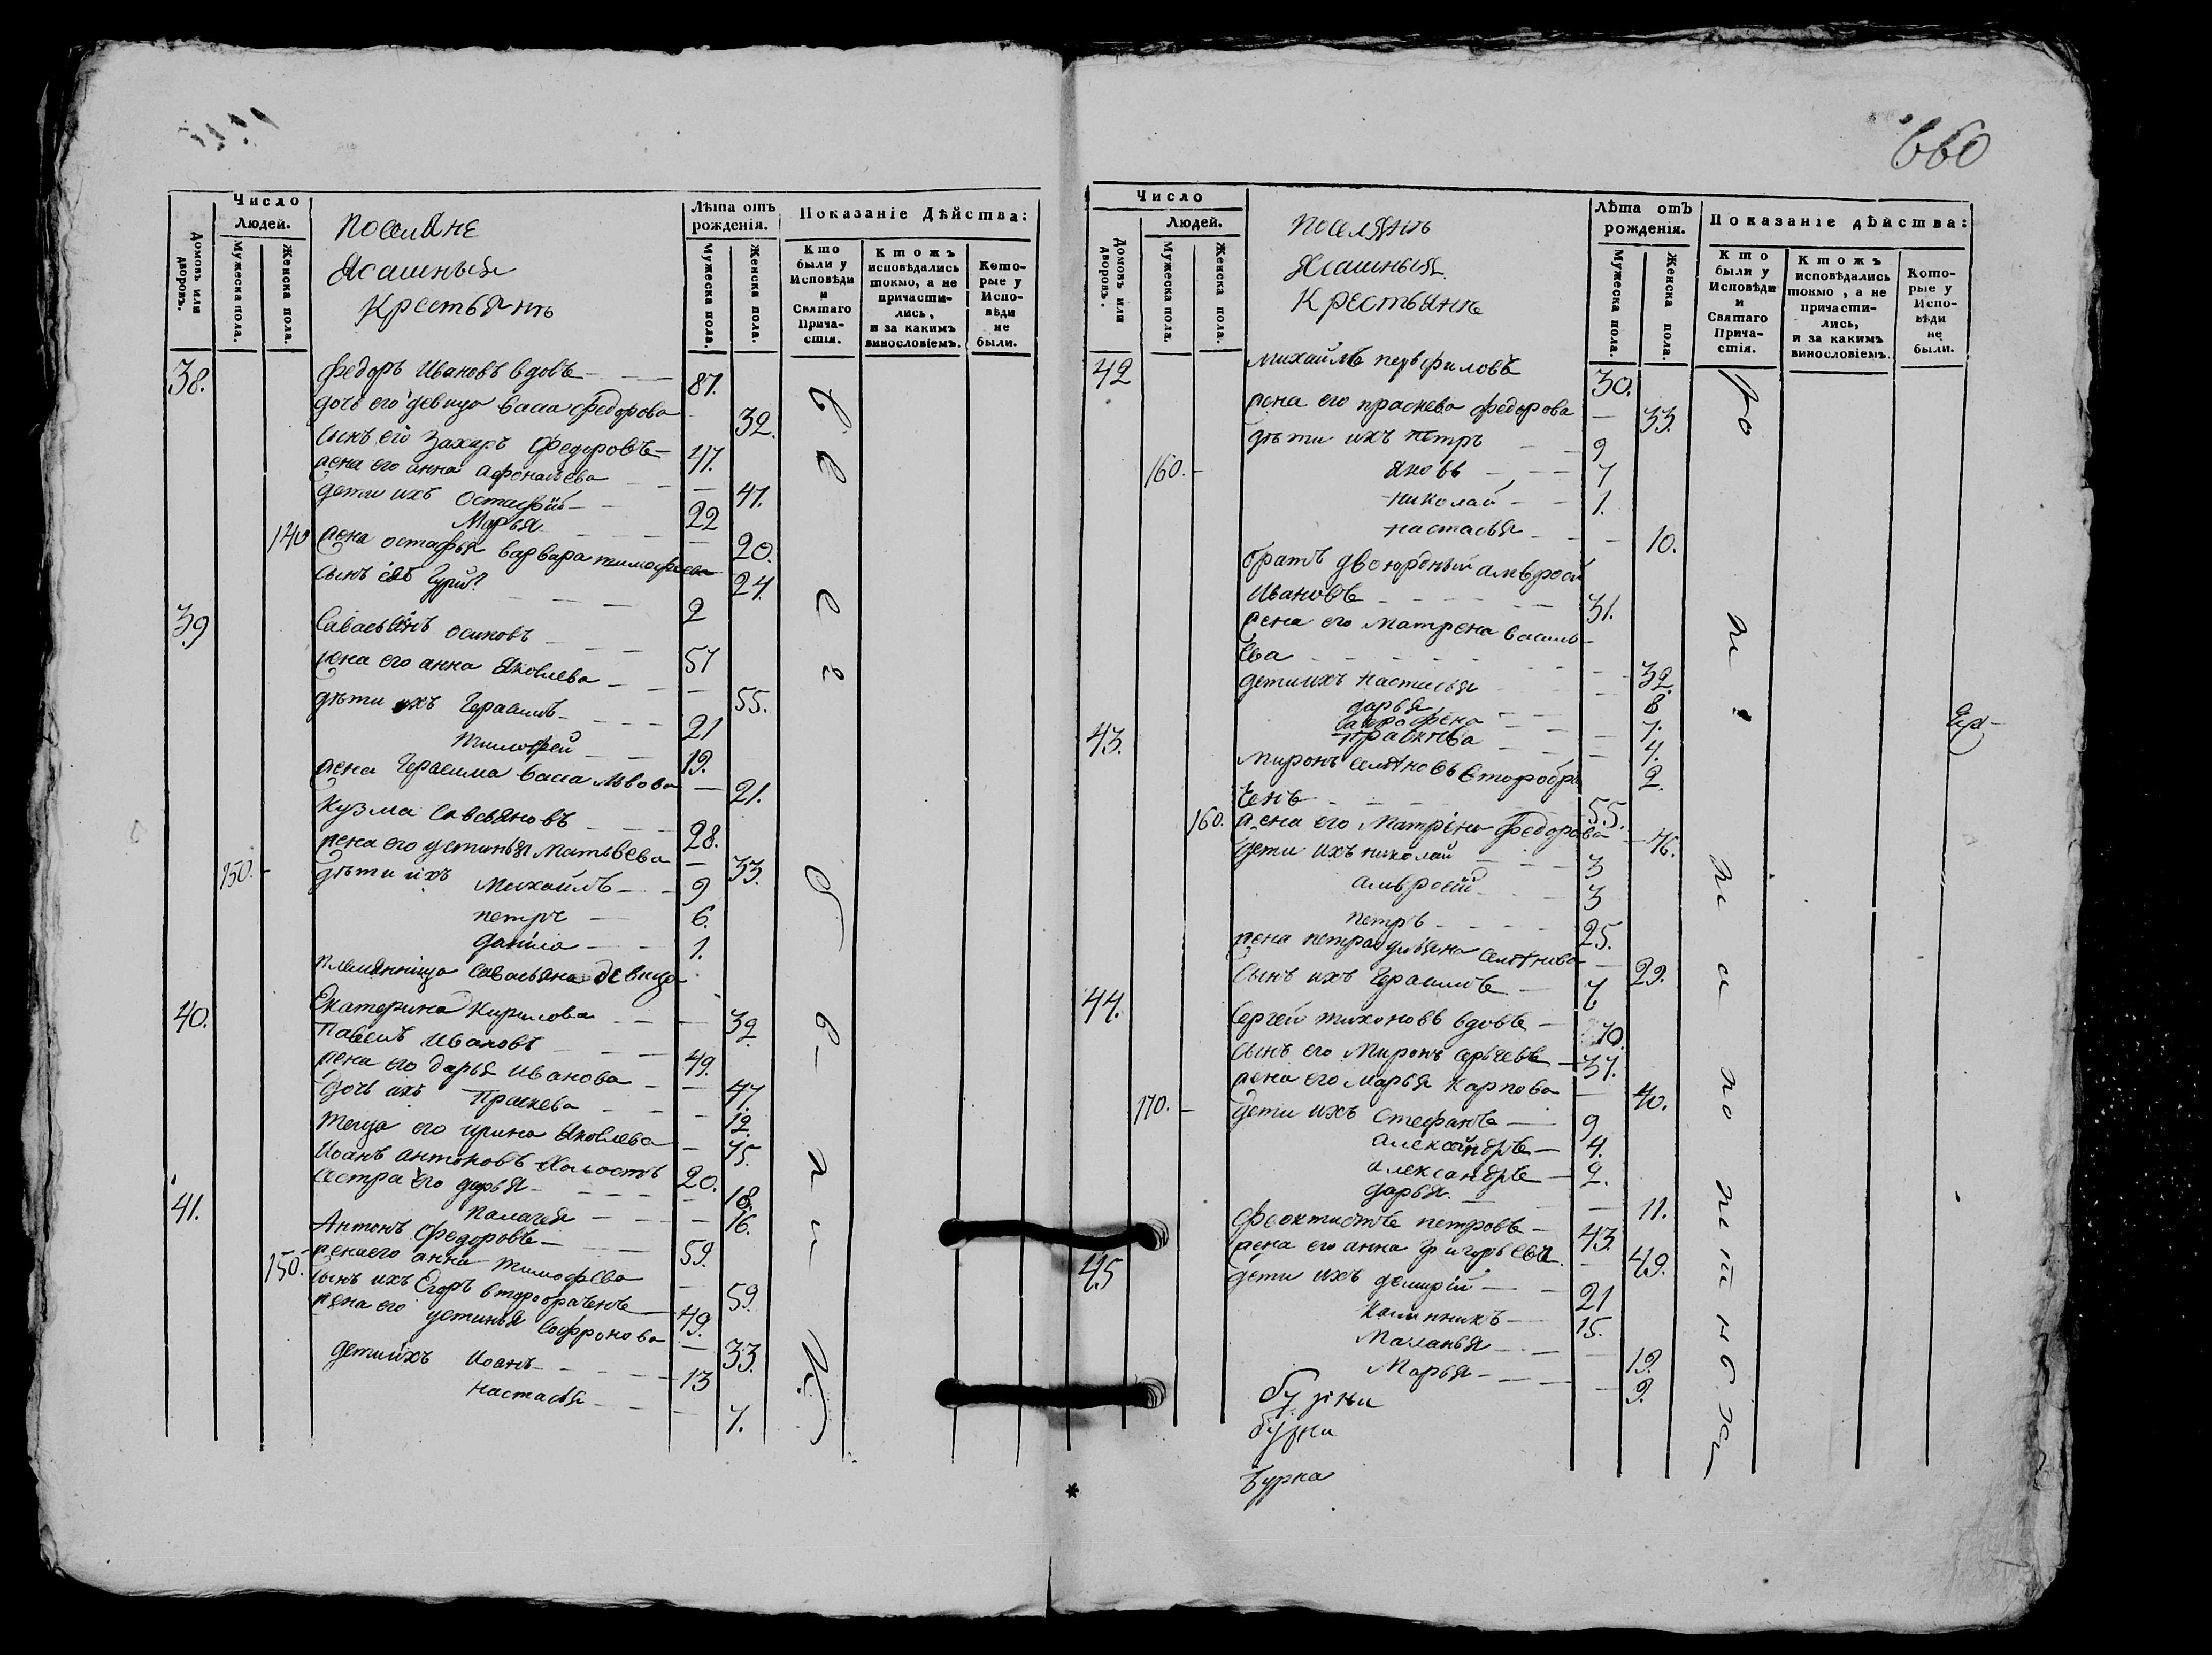 660
Число
Людей.
Домовъ или дворовъ.
Мужеска пола.
Женска пола.
Поселяне
Ясашныя
Крестьянѣ
Лѣта отъ рожденія.
Мужеска пола.
Женска пола.
Показаніе Дѣйства:
Кто были у Исповѣди и Святаго Причастія.
Ктожъ исповѣдались токмо, а не причастились, и за какимъ винословіемъ.
Которые у Исповѣди не были.
38. Федоръ Ивановъ вдовъ 87.
дочь его девица Васа Федорова 32.
сынъ его Захаръ Федоровъ 47.
жена его анна афонасьева 47.
дети ихъ Остафiй 22
Марья 20.
140 жена остафья варвара тимофеева 24.
сынъ ево Гурiй 2
39 Савасьянъ осиповъ 57
жена его анна Яковлева 55.
дѣти ихъ Герасимъ 21
Тимофей 19.
жена Герасима Васа Львова 21.
Кузма Савсьяновъ 28.
жена его устинья Матьвева 33.
150. дѣти ихъ Михайлъ 9
петръ 6.
данiла 1.
племянница Савасьяна девица
Екатерина Кирилова 32.
40. Павелъ Ивановъ 49.
жена его дарья Иванова 47.
дочь ихъ Праскева 12.
теща его ирина Яковлева 75.
Иоанъ антоновъ холостъ 20.
сестра его дарья 18.
Палагея 16.
41. Антонъ Федоровъ 59.
150. жена его анна Тимофева 59.
сынъ ихъ Егоръ второбраченъ 49.
жена его устинья Софронова 33.
дети ихъ Иоанъ 13
настасья 7.
Число
Людей.
Домовъ или дворовъ.
Мужеска пола.
Женска пола.
Поселянѣ
Ясашныя
Крестьянѣ
Лѣта отъ рожденія.
Мужеска пола.
Женска пола.
Показаніе дѣйства:
Кто были у Исповѣди и Святаго Причастія.
Ктожъ исповѣдались токмо, а не причастились, и за какимъ винословіемъ.
Которые у Исповѣди не были.
42 Михайлъ перфиловъ 30.
жена его праскева федорова 33.
дѣти ихъ петръ 9
160. яковъ 7
николай 1.
настасья 10.
братъ двоюродный амвросiй
Ивановъ 31.
жена его матрена василь-
ева 32.
дети ихъ настасья 8
дарья 7.
праскева 2.
43. миронъ второбра-
ченъ 55.
160. жена его Матрена Федорова 46.
дети ихъ николай 3
амвросiй 3
петръ 25.
жена петра ульяна 29.
сынъ ихъ Герасимъ 7
44. Сергей тихоновъ вдовъ 70.
сынъ его Миронъ сергеевъ 37.
жена его марья Карпова 40.
170. дети ихъ Стефанъ 9
александръ 4.
александръ 2.
дарья. 11.
феоктистъ петровъ 43.
45 жена его анна Григорьева 49.
дети ихъ 21
Калинникъ 15.
Маланья 19.
Марья 9.
бурка